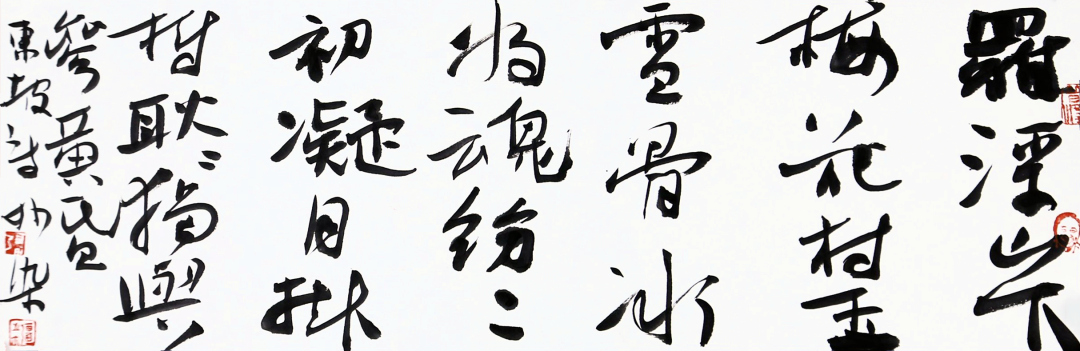 羅浮山下
梅花村玉
雪骨冰
為魂紛々
初凝月掛
樹耿々獨與
參黃昏
東坡詩